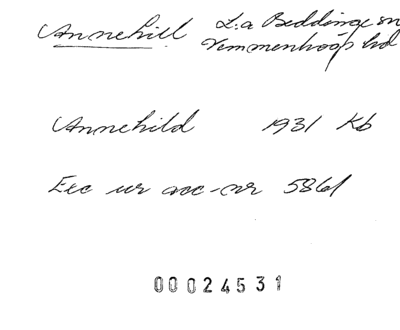 Annehill L:a Beddinge sn
Vemmenhögs hd
Annehild 1931 Kb
Exc ur acc-nr 5861
00024531